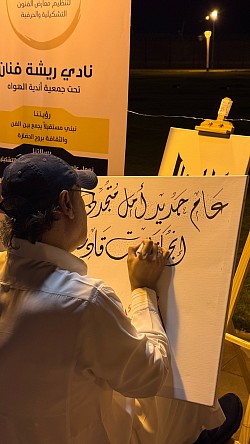 لتنظيم معارض الفنون
التشكيلية والحرفية
نادي ريشة فنان
تحت جمعية أندية الهواه
رؤيتنا
نبني مستقبلاً يجمع بين الفن
والثقافة بروح الحضارة
رسالتنا
عام جديد أمل متجدد
قادم